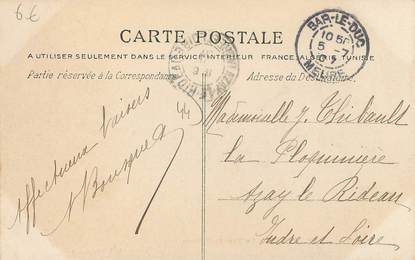 6€
CARTE POSTALE
A UTILISER SEULEMENT DANS LE SERVICE INTERIEUR FRANCE, ALGERIE, TUNISIE
Partie réservée à la Correspondance
Adresse du Destinataire
BAR-LE-DUC
10 50
5 -7
05
MEUSE
44
Affectueux baisers
Bousquet
Mademoiselle J. Thibault
la
Azay le Rideau
Indre et Loire